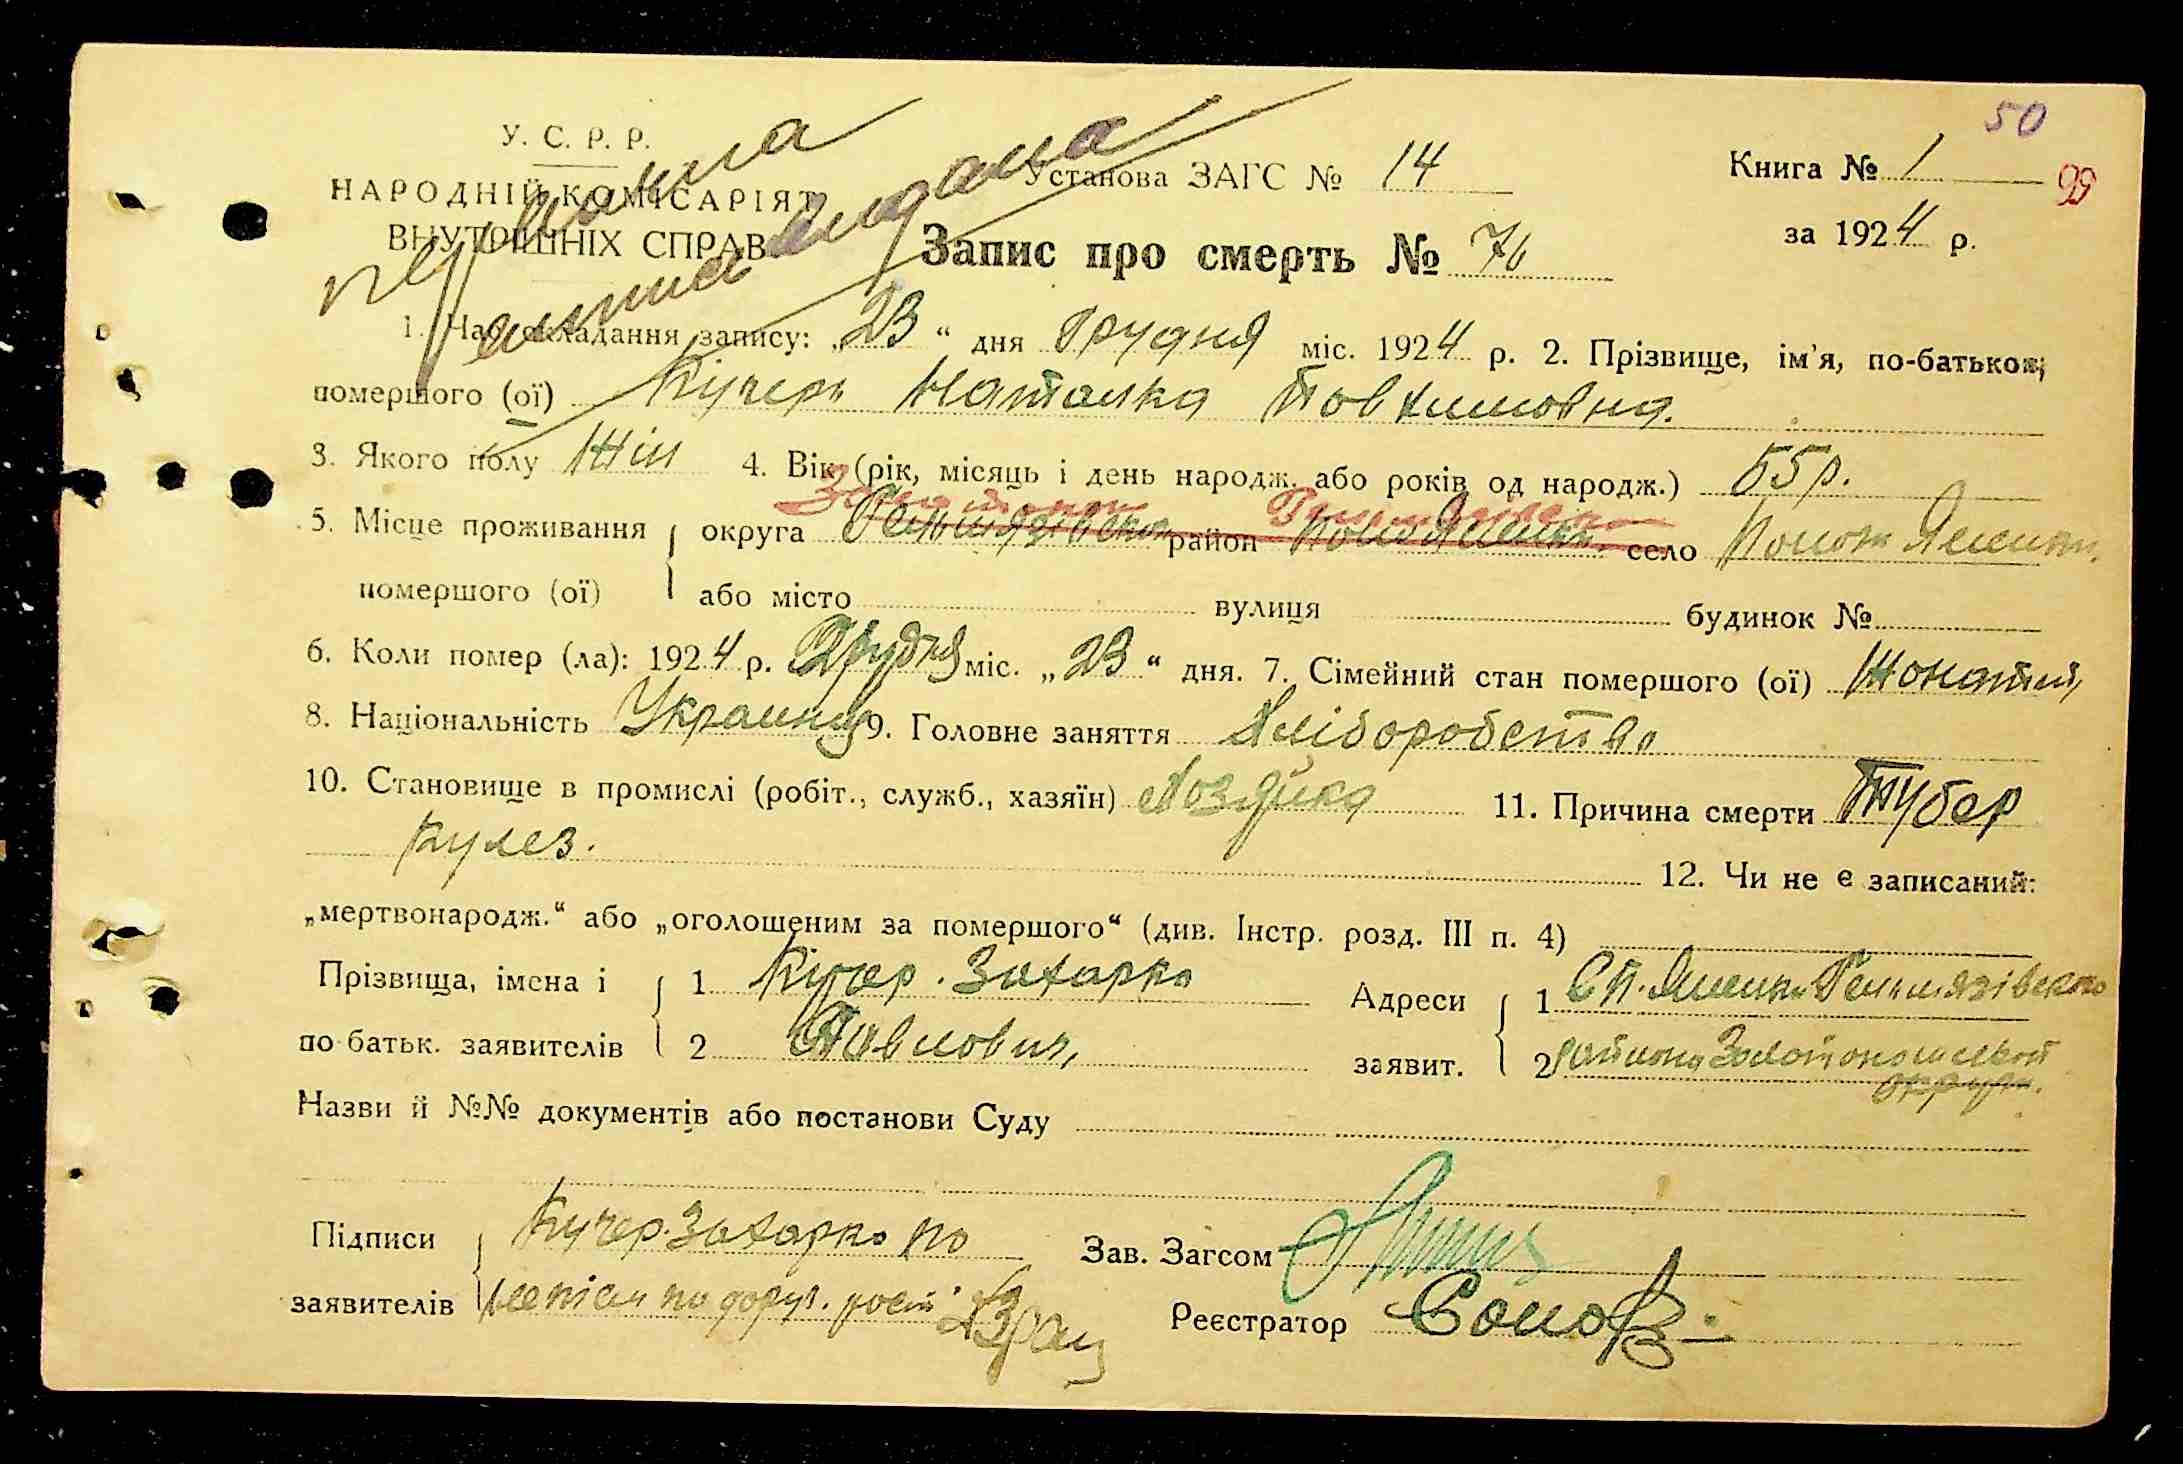 50
У. С. Р. Р.
НАРОДНІЙ КОМІСАРІЯТ
ВНУТРІШНІХ СПРАВ
Установа ЗАГС № 14
Книга № 1
99
за 1924 р.
Запис про смерть № 76
видана
1. Час складання запису: „23“ дня Грудня міс. 1924 р. 2. Прізвище, ім'я, по-батькові
помершого (ої) Кучерь Наталка
3. Якого полу Жін 4. Вік (рік, місяць і день народж. або років од народж.) 55 р.
5. Місце проживання округа Гельмязівска район село
помершого (ої) або місто вулиця будинок №
6. Коли помер (ла): 1924 р. Грудня міс. „23“ дня. 7. Сімейний стан помершого (ої) Жонатий
8. Національність Украинец 9. Головне заняття Хліборобство
10. Становище в промислі (робіт., служб., хазяїн) Хозяйка 11. Причина смерти Тубер
кулез.
12. Чи не є записаний:
„мертвонародж.“ або „оголошеним за помершого“ (див. Інстр. розд. III п. 4)
Прізвища, імена і 1 Кучер. Захарко Адреси 1 Гельмязівского
по батьк. заявителів 2 Павлович, заявит. 2 района Золотоношської
округи.
Назви й №№ документів або постанови Суду
Підписи Кучер. Захарко Зав. Загсом
заявителів Реєстратор